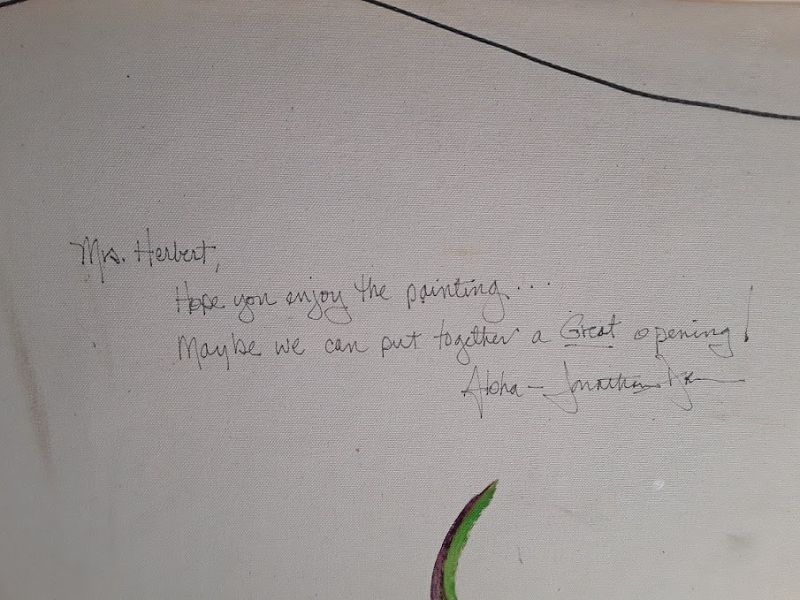 Mrs. Herbert,
Hope you enjoy the painting...
Maybe we can put together a Great opening!
Aloha – Jonathan